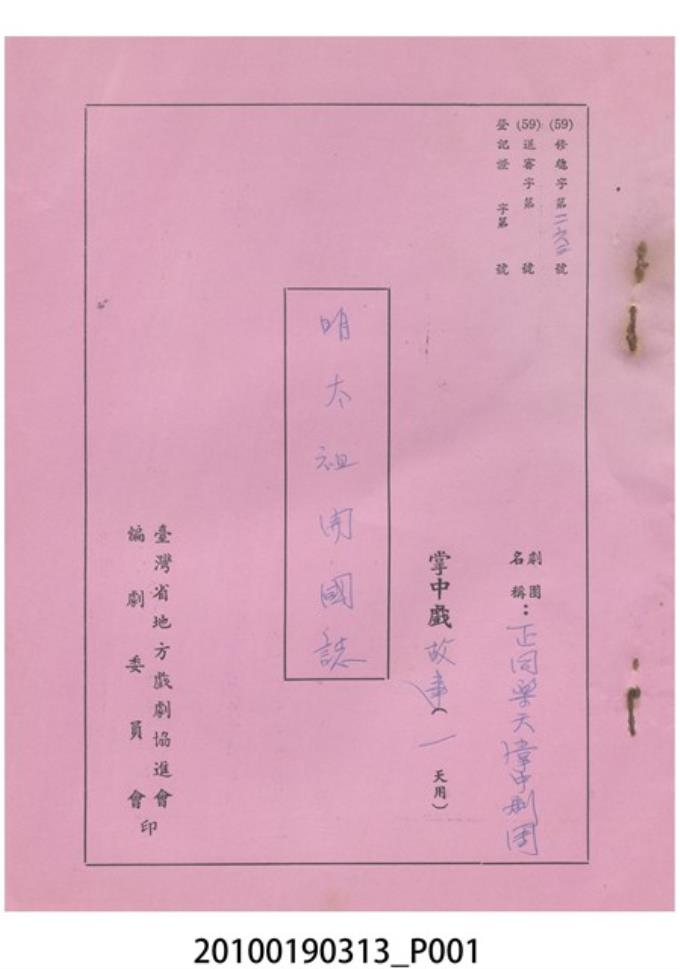 (59)修總字第二六二號
(59)送審字第　號
登記證　字第　號
劇團名稱：正同樂天掌中劇團
掌中戲故事（一天用）
明太祖開國誌
臺灣省地方戲劇協進會
編劇委員會印
20100190313_P001